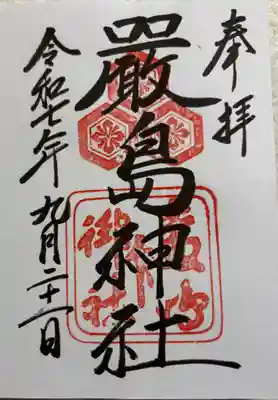 奉拝
嚴島神社
令和七年九月二十一日